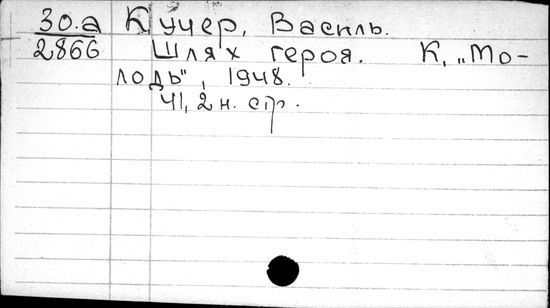 30.а Кучер, Василь.
2866 Шлях героя. К, „Мо-
лодь", 1948.
41, 2 н. стр.